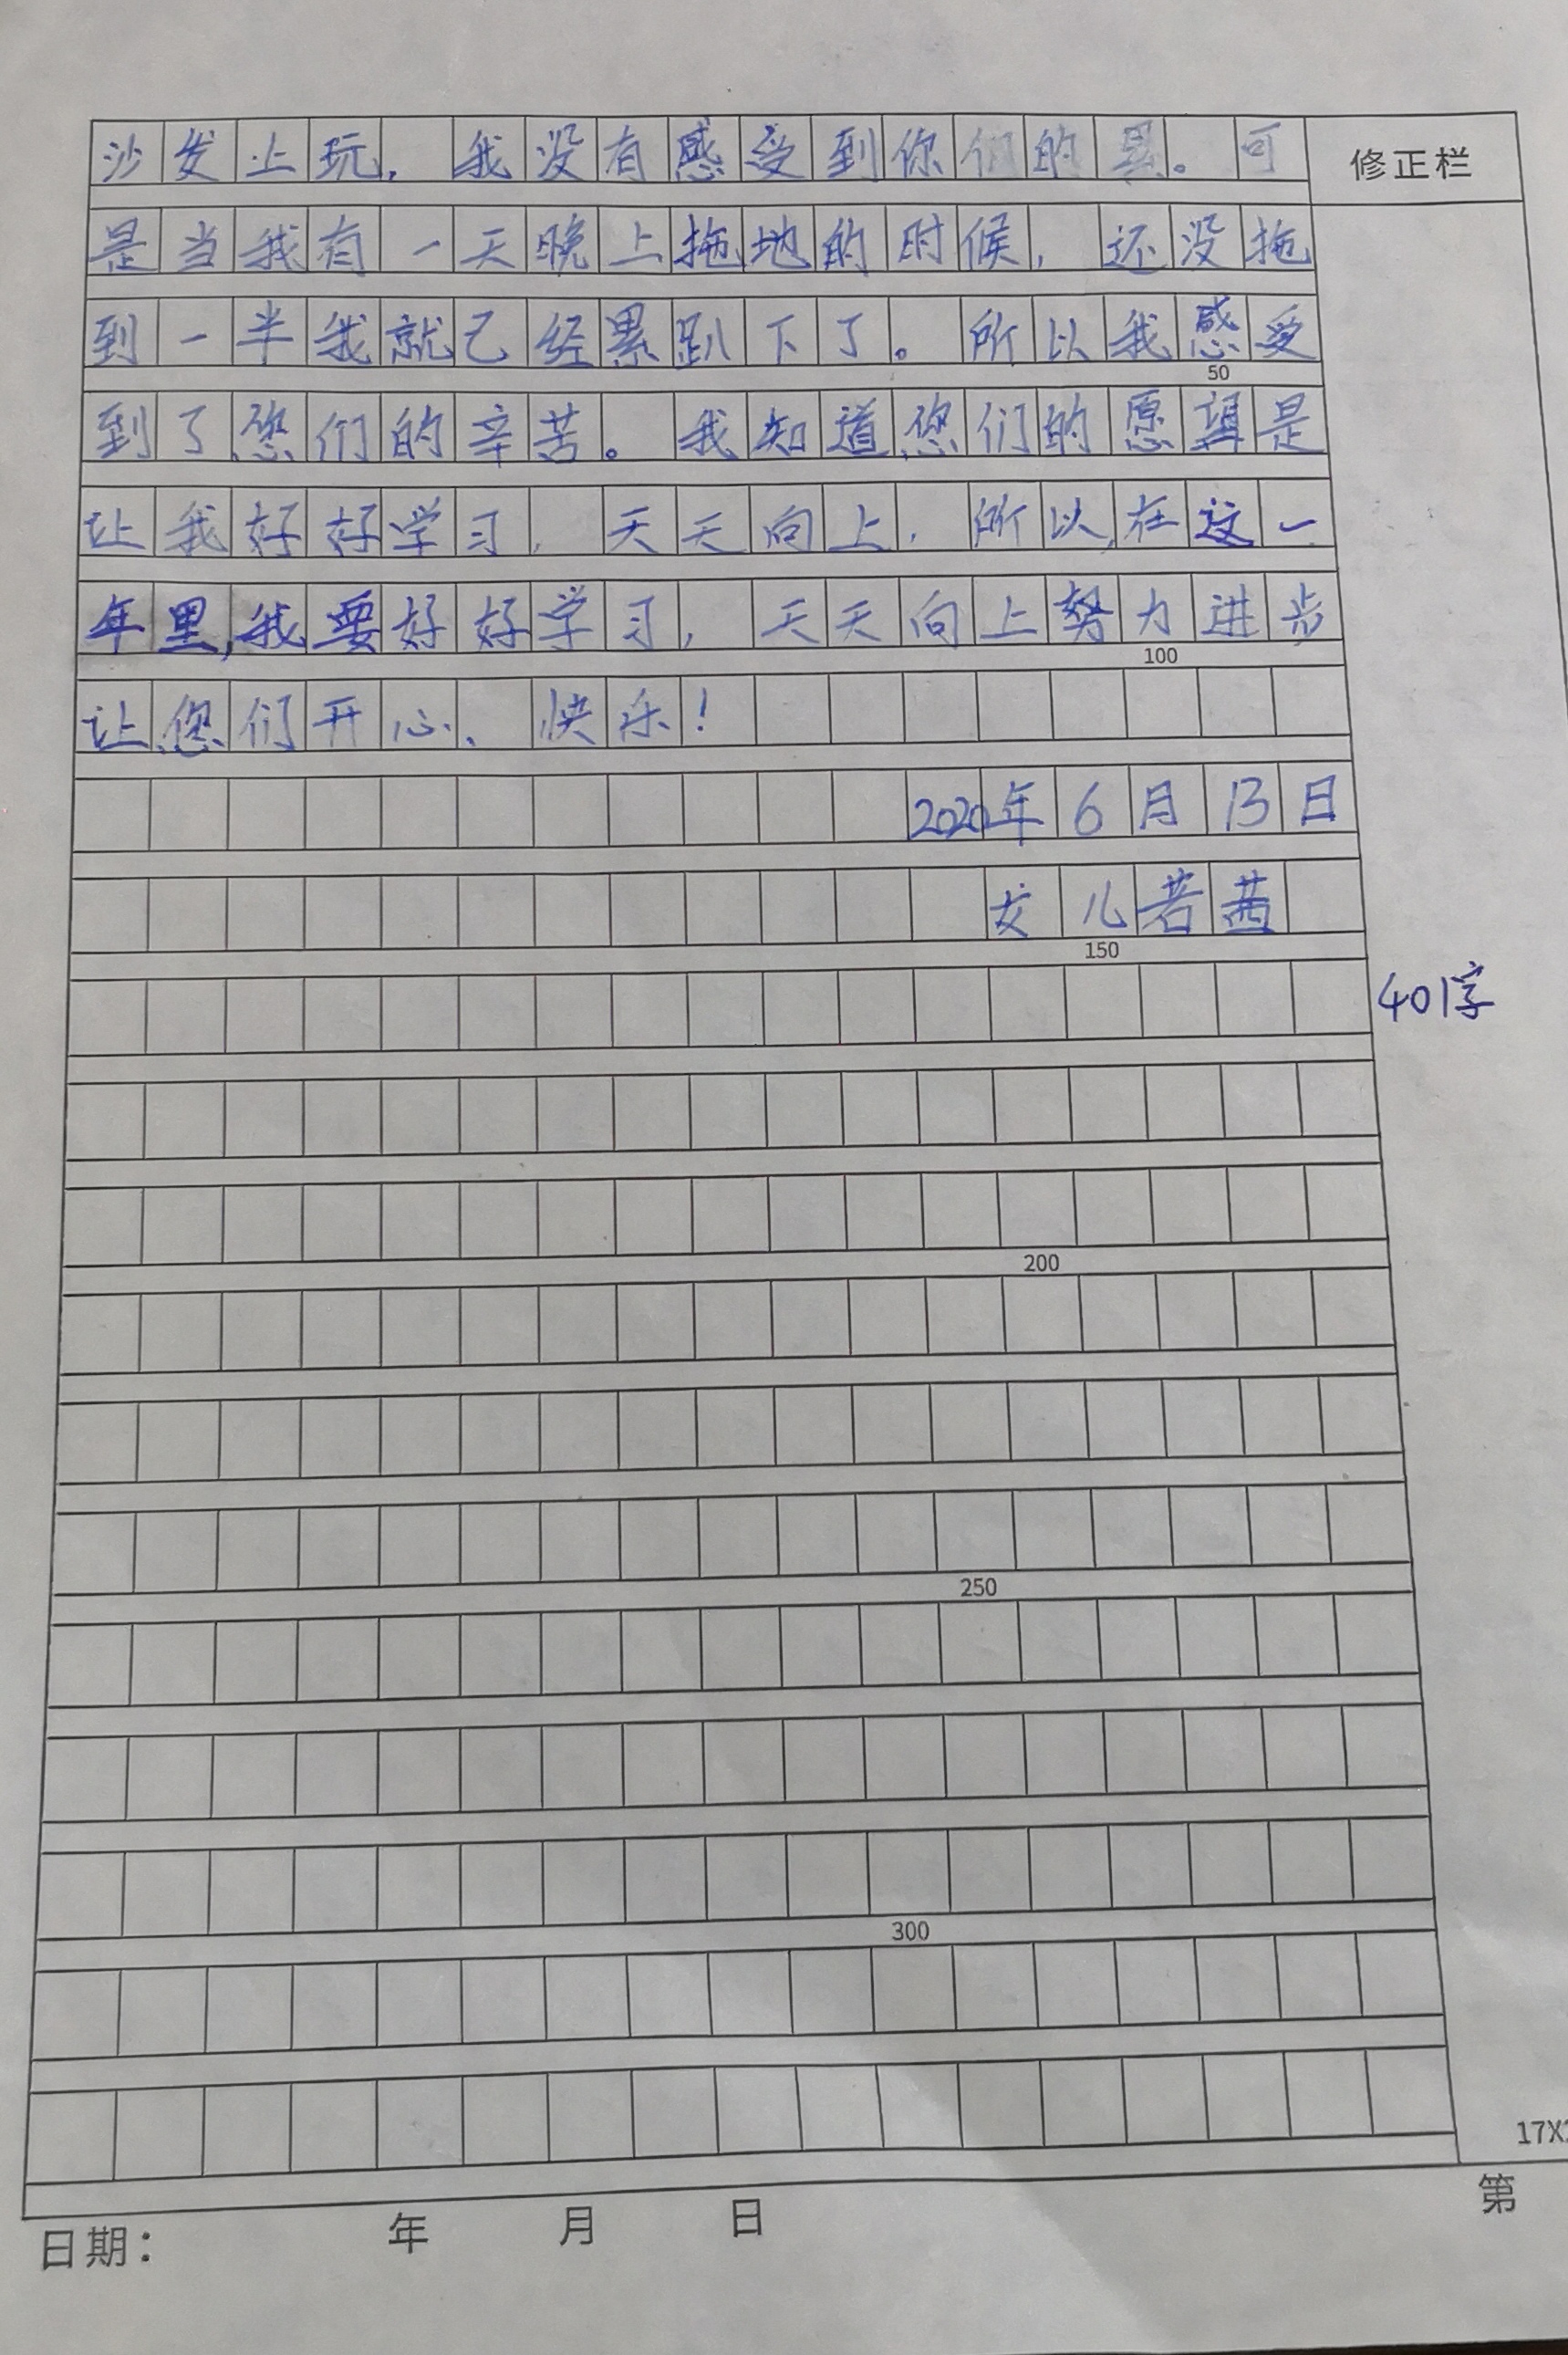 沙发上玩，我没有感受到你们的累。可
修正栏
是当我有一天晚上拖地的时候，还没拖
到一半我就己经累趴下了。所以我感受
50
到了您们的辛苦。我知道您们的愿望是
让我好好学习，天天向上，所以,在这一
年里,我要好好学习，天天向上努力进步
100
让您们开心、快乐！
2020年6月13日
女儿若茜
150
401字
200
250
300
17X
第
日期： 年 月 日